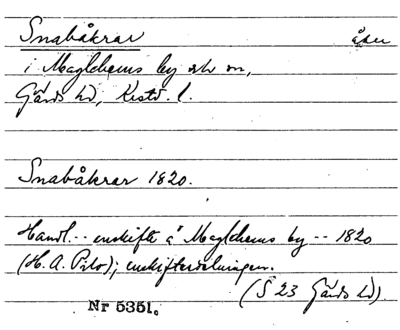 Snabåkrar åker
i Maglehems by och sn,
Gärds hd, Krist. l.
Snabåkrar 1820.
Handl. -- enskifte å Maglehems by -- 1820
(H. A. Pilo); enskiftesdelningen.
(S 23 Gärds hd).
Nr 5351.